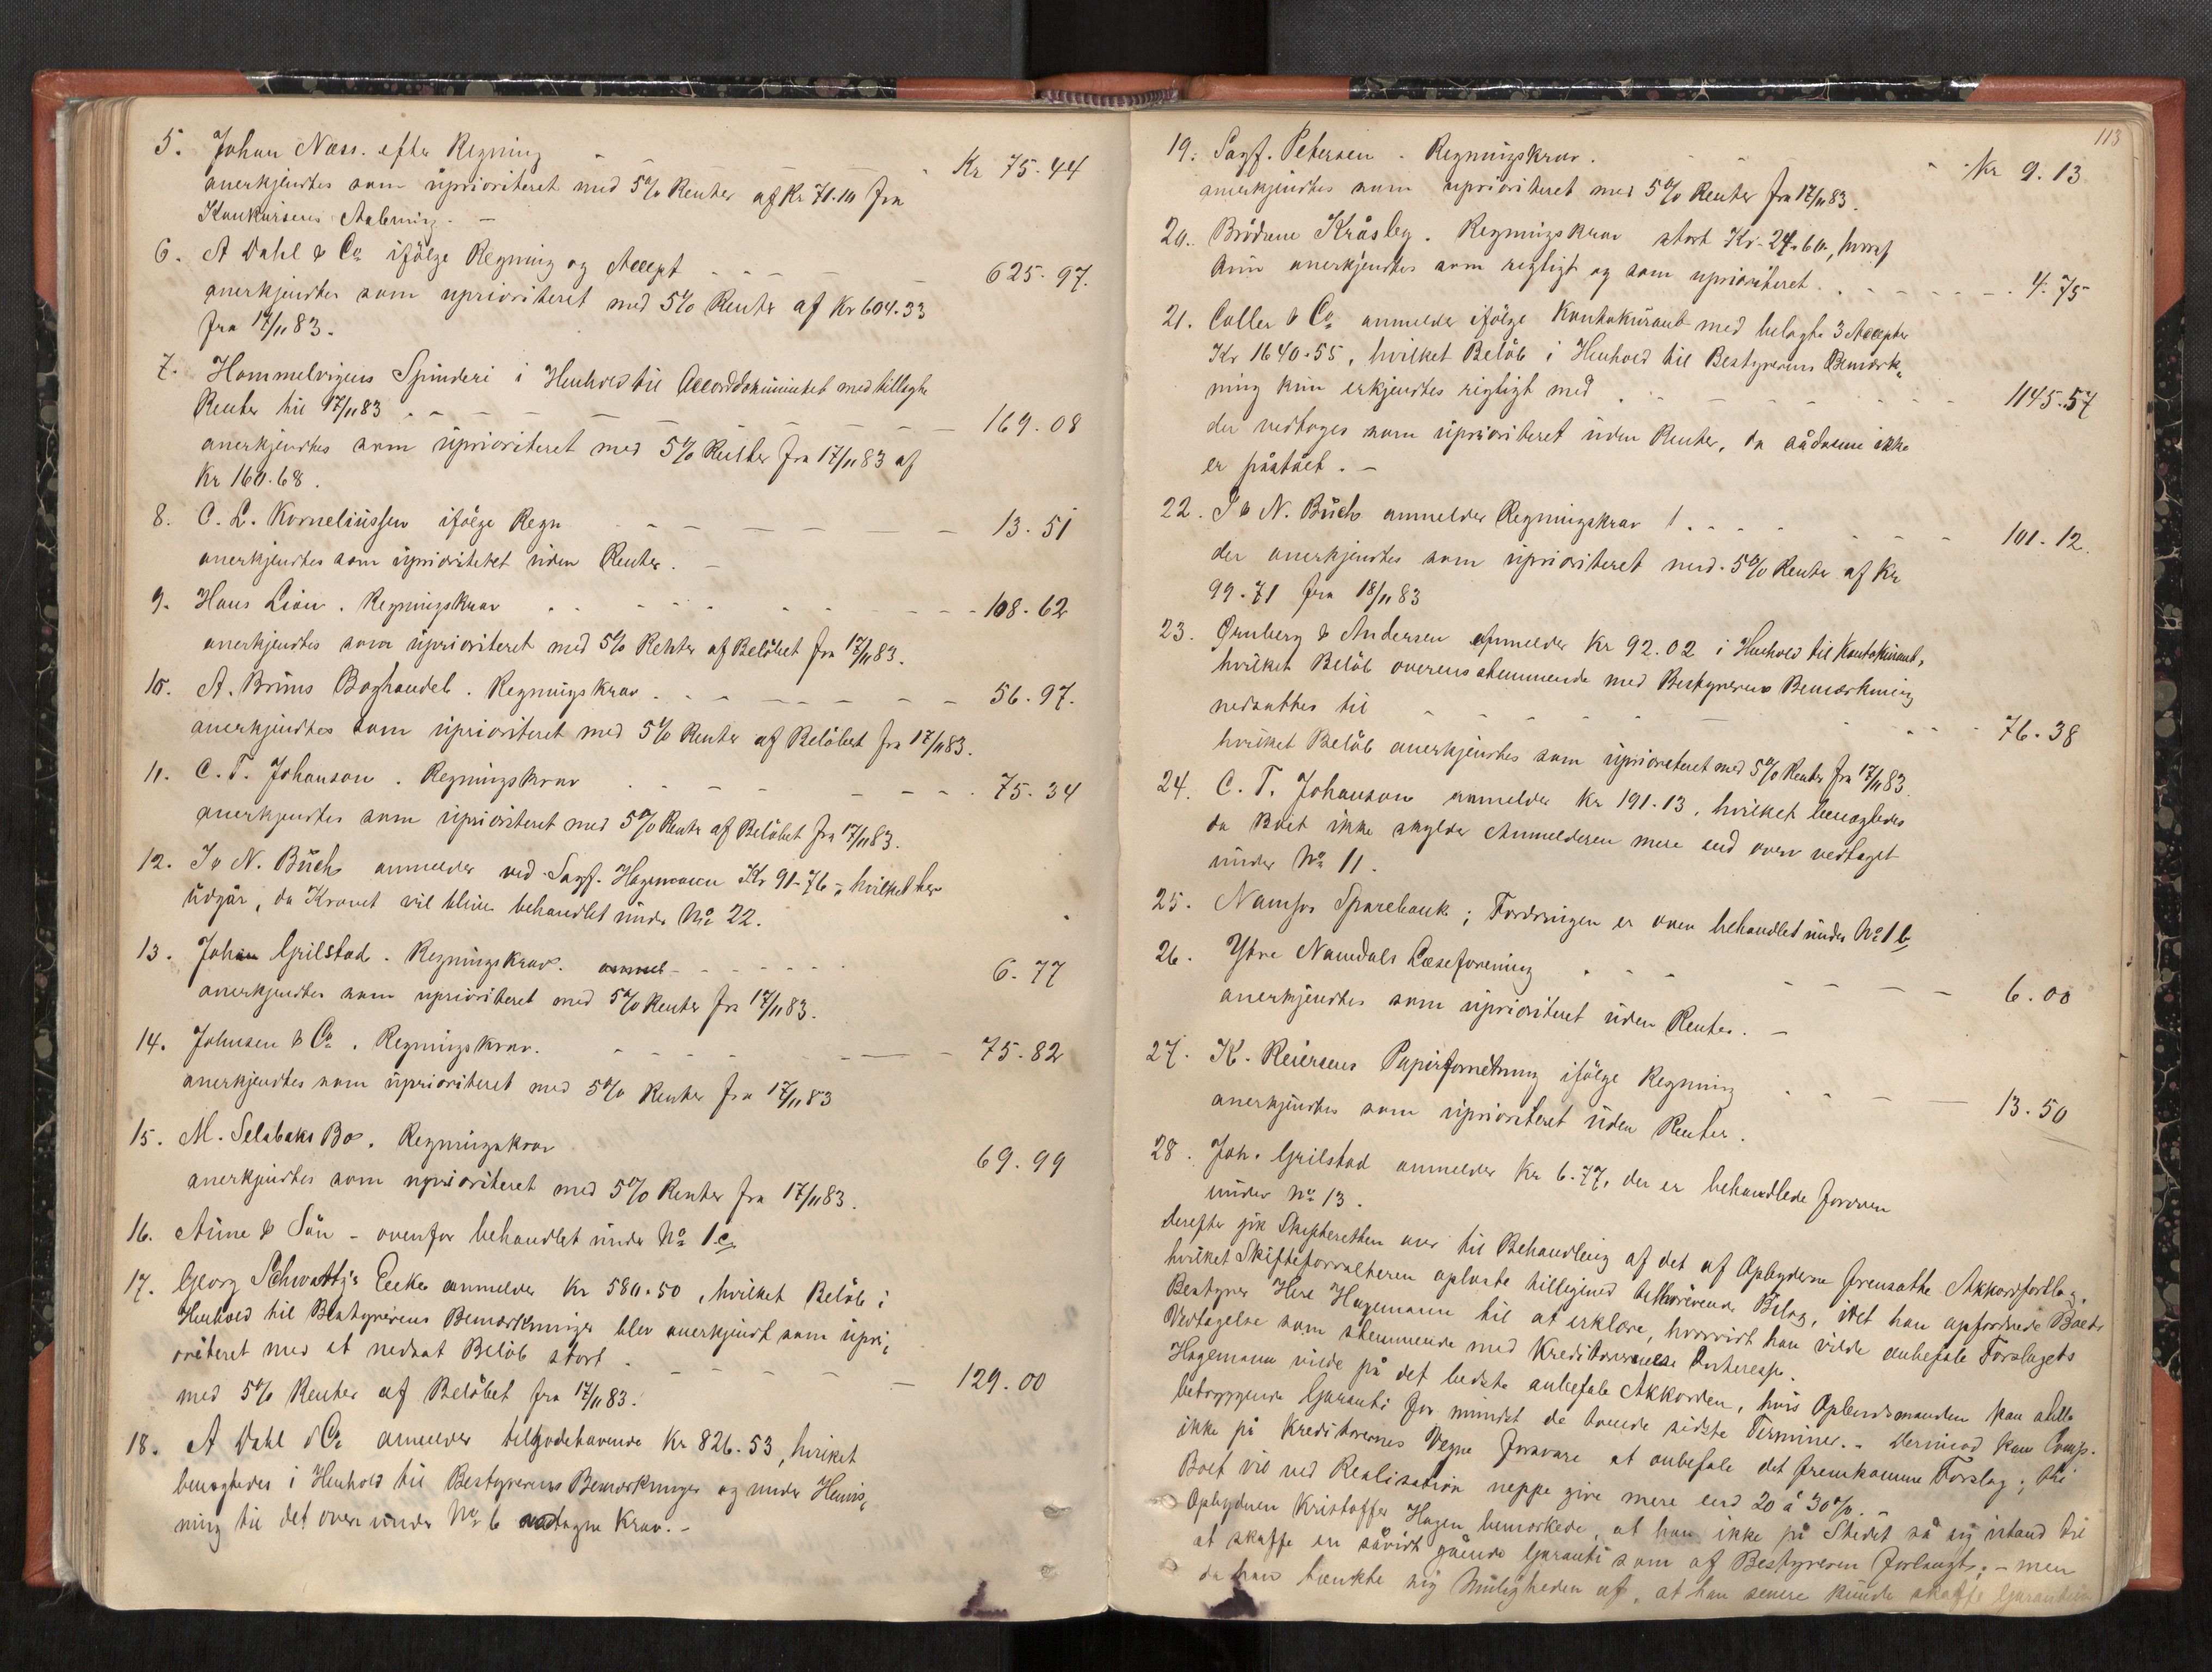 5. Johan Næss. efter Regning - - - - Kr 75.44
anerkjendtes som uprioriteret med 5% Renter af Kr 71.10 fra
Konkursens Aabning. -
6. A Dahl & Co ifölge Regning og Accept - - - - 625.97.
anerkjendtes som uprioriteret med 5% Renter af Kr 604.33
fra 17/11 83.
7. Hommelvigens Spinderi i Henhold til Accorddokumentet med tillagte
Renter til 17/11 83 - - - - - 169.08
anerkjendtes som uprioriteret med 5% Renter fra 17/11 83 af
Kr 160.68.
8. C. L. Korneliussen ifölge Regn - - - - 13.51
anerkjendtes som uprioriteret uden Renter. -
9. Hans Lian. Regningskrav - - - - 108.62
anerkjendtes som uprioriteret med 5% Renter af Belöbet fra 17/11 83.
10. A. Bruns Boghandel. Regningskrav. - - - - 56.97.
anerkjendtes som uprioriteret med 5% Renter af Belöbet fra 17/11 83.
11. C. T. Johanson. Regningskrav - - - - 75.34
anerkjendtes som uprioriteret med 5% Rente af Belöbet fra 17/11 83.
12. I & N. Buch anmelder ved Sagf. Hagemann Kr 91-76 - hvilket her
udgår, da Kravet vil blive behandlet under No 22.
13. Johan Grilstad. Regningskrav. - - - - 6.77
anerkjendtes som uprioriteret med 5% Renter fra 17/11 83.
14. Johnsen & Co. Regningskrav. - - - - 75.82
anerkjendtes som uprioriteret med 5% Renter fra 17/11 83
15. M. Selabaks Bo. Regningskrav 69.99
anerkjendtes som uprioriteret med 5% Renter fra 17/11 83.
16. Aune & Sön - ovenfor behandlet under No 1 c
17. Georg Schwartz's Enke anmelder Kr 580.50, hvilket Belöb i
Henhold til Bestyrerens Bemærkninger blev anerkjendt som upri„
oriteret med et nedsat Belöb stort - - - - 129.00
med 5% Renter af Belöbet fra 17/11 83.
18. A Dahl & Co anmelder tilgodehavende Kr 826.53, hvilket
benegtedes i Henhold til Bestyrerens Bemærkninger og under Henvis„
ning til det oven under No 6 vedtagne Krav. -
113
19. Sagf. Petersen. Regningskrav. - - Kr 9.13
anerkjendtes som uprioriteret med 5% Renter fra 17/11 83.
20. Brödrene Kråsby. Regningskrav stort Kr. 24.60, hvoraf
kun anerkjendtes som rigtigt og som uprioriteret. - - - - 4.75
21. Coller & Co anmelder ifölge Kontokurant med belagte 3 Accepter
Kr 1640.55, hvilket Belöb i Henhold til Bestyrerens Bemærk„
ning kun erkjendtes rigtigt med - - - - 1145.57
der vedtoges som uprioriteret uden Renter, da sådanne ikke
er påstået. -
22. I & N. Buch anmelder Regningskrav - - - - 101.12.
der anerkjendtes som uprioriteret med 5% Rente af Kr
99.71 fra 18/11 83
23. Ørnberg & Andersen anmelder Kr 92.02 i Henhold til Kontokurant,
hvilket Belöb overensstemmende med Bestyrerens Bemærkning
nedsattes til - - - - 76.38
hvilket Belöb anerkjendtes som uprioriteret med 5% Renter fra 17/11 83.
24. C. T. Johanson anmelder Kr 191.13, hvilket benegtedes
da Boet ikke skylder Anmelderen mere end oven vedtaget
under No 11.
25. Namsos Sparebank; Fordringen er oven behandlet under No 1 b
26. Ytre Namdals Læseforening - - - - 6.00
anerkjendtes som uprioriteret uden Renter. -
27. K. Reiersens Papirforretning ifölge Regning - - - - 13.50
anerkjendtes som uprioriteret uden Renter.
28. Joh. Grilstad anmelder Kr 6.77, der er behandlede foroven
under No 13.
Derefter gik Skifteretten over til Behandling af det af Opbyderen fremsatte Akkordforslag,
hvilket Skifteforvalteren oplæste tilligemed tilhörende Bilag, idet han opfordrede Boets
Bestyrer Herr Hagemann til at erklære, hvorvidt han vilde anbefale Forslagets
Vedtagelse som stemmende med Kreditorernes Interesse.
Hagemann vilde på det bedste anbefale Akkorden, hvis Opbudsmanden kan stille
betryggende Garanti for mindst de tvende sidste Terminer. - Derimod kan Comp.
ikke på Kreditorernes Vegne forsvare at anbefale det fremkomne Forslag; thi
Boet vil ved Realisation neppe give mere end 20 à 30%. -
Opbyderen Kristoffer Hagen bemærkede, at han ikke på Stedet så sig istand til
at skaffe en såvidt gående Garanti som af Bestyreren forlangt; - men
da han tænkte sig Muligheden af, at han senere kunde skaffe Garantien